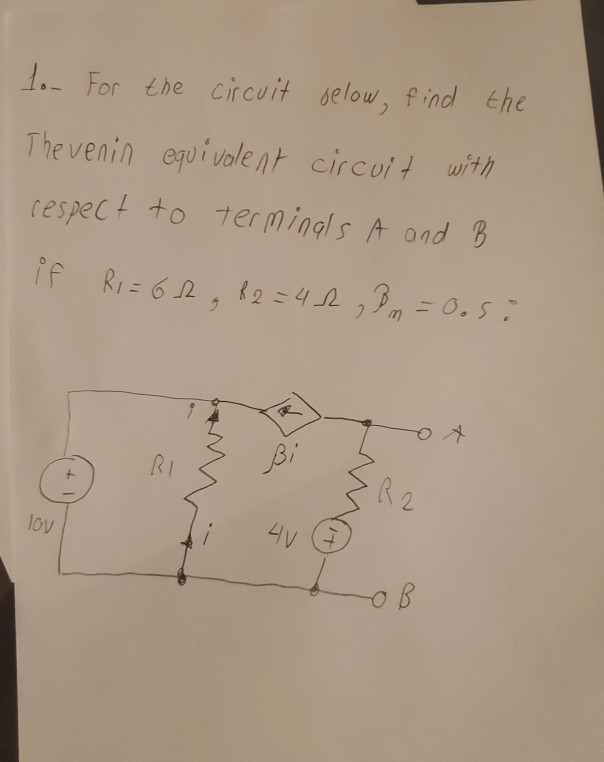 1.- For the circuit below, find the
Thevenin equivalent circuit with
respect to terminals A and B
if R1 = 6 Ω, R2 = 4 Ω, βm = 0.5:
A
R1
βi
R2
+
-
10V
i
4V
B